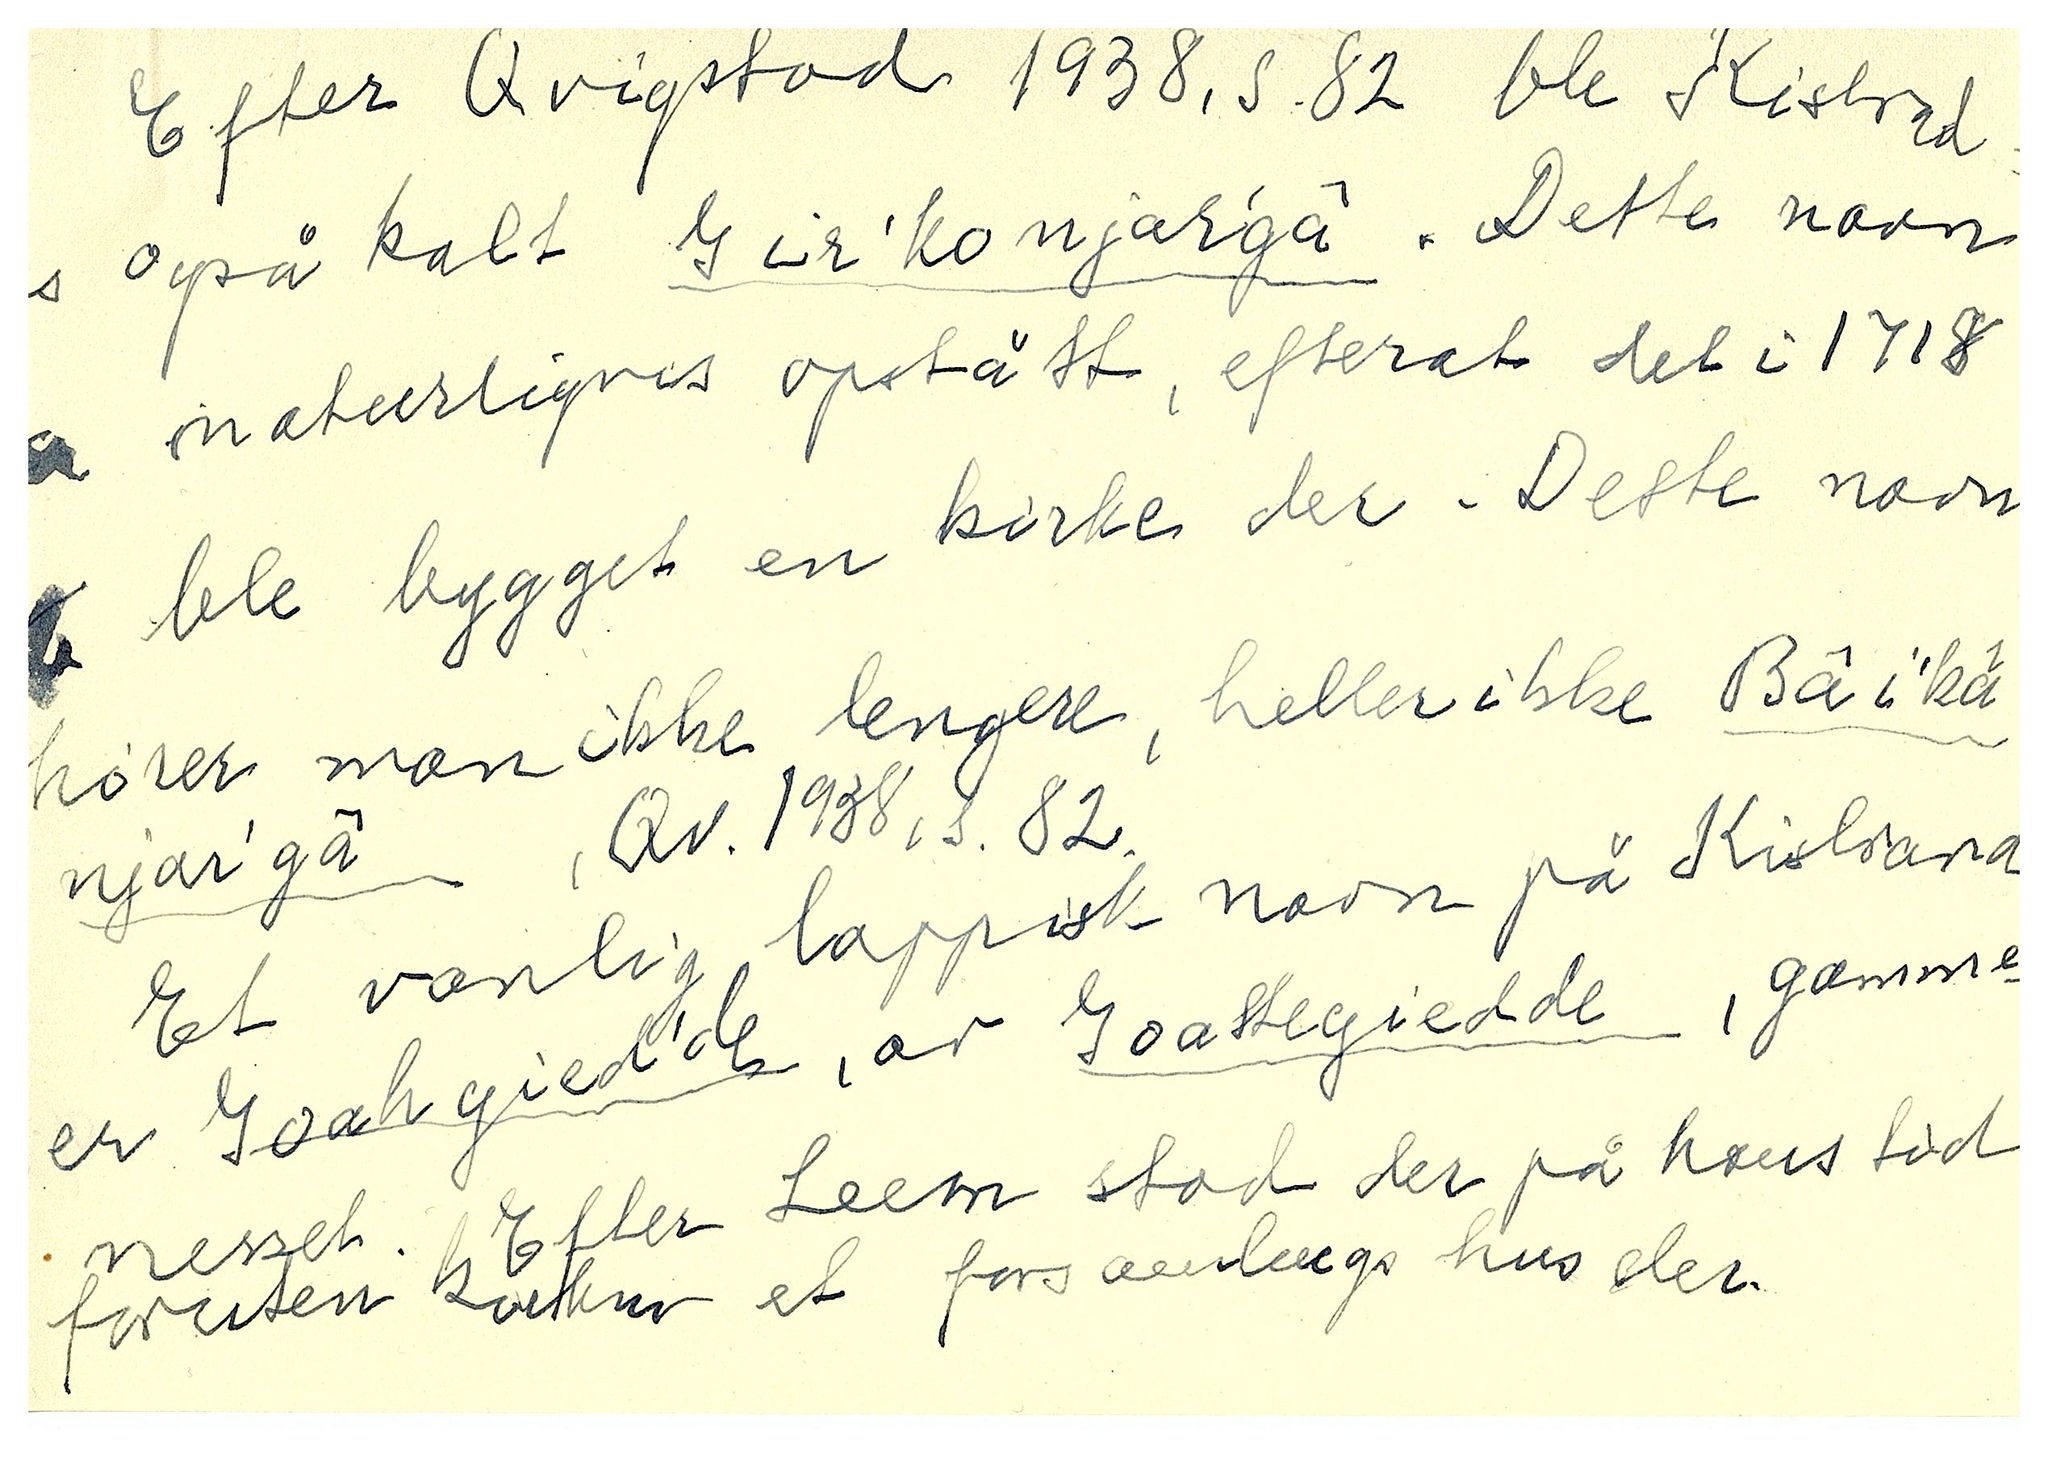 Efter Qvigstad 1938, s. 82 ble Kistrand
også kalt Gir'konjar'gâ. Dette navn
naturligvis opstått, efterat det i 1718
ble bygget en kirke der. Dette navn
hører man ikke lengere, heller ikke Bäi'kâ
njar'gâ, Qv. 1938, s. 82.
Et vanlig lappisk navn på Kistrand
er Goahgied'de, av Goattegiedde, gamme
nesset. Efter Leem stod der på hans tid
foruten kirken et forsamlings hus der.